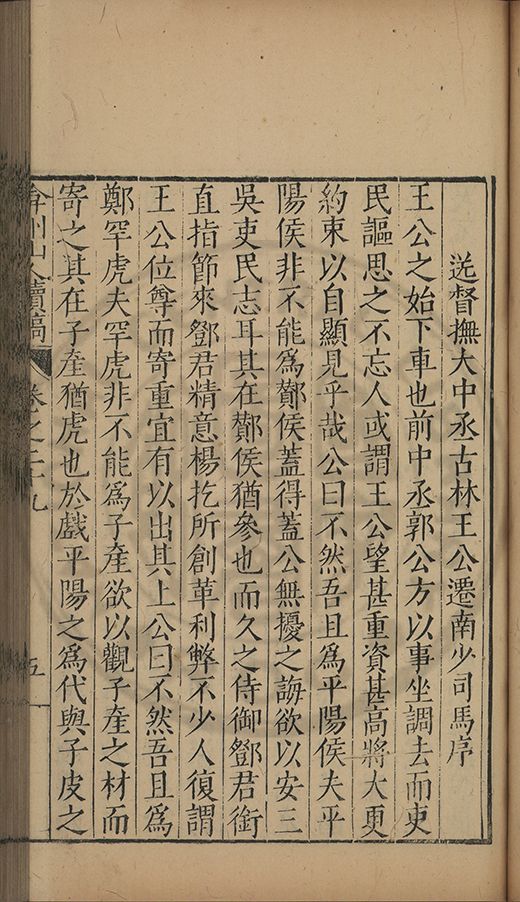 送督撫大中丞古林王公遷南少司馬序
王公之始下車也前中丞郭公方以事坐調去而吏
民謳思之不忘人或謂王公望甚重資甚高將大更
約束以自顯見乎哉公曰不然吾且為平陽侯夫平
陽侯非不能為酇侯蓋得蓋公無擾之誨欲以安三
吳吏民志耳其在酇侯猶參也而久之侍御鄧君銜
直指節來鄧君精意楊扢所創革利弊不少人復謂
王公位尊而寄重宜有以出其上公曰不然吾且為
鄭罕虎夫罕虎非不能為子產欲以觀子產之材而
寄之其在子產猶虎也於戲平陽之為代與子皮之
弇州山人續稿 卷之二十九 五